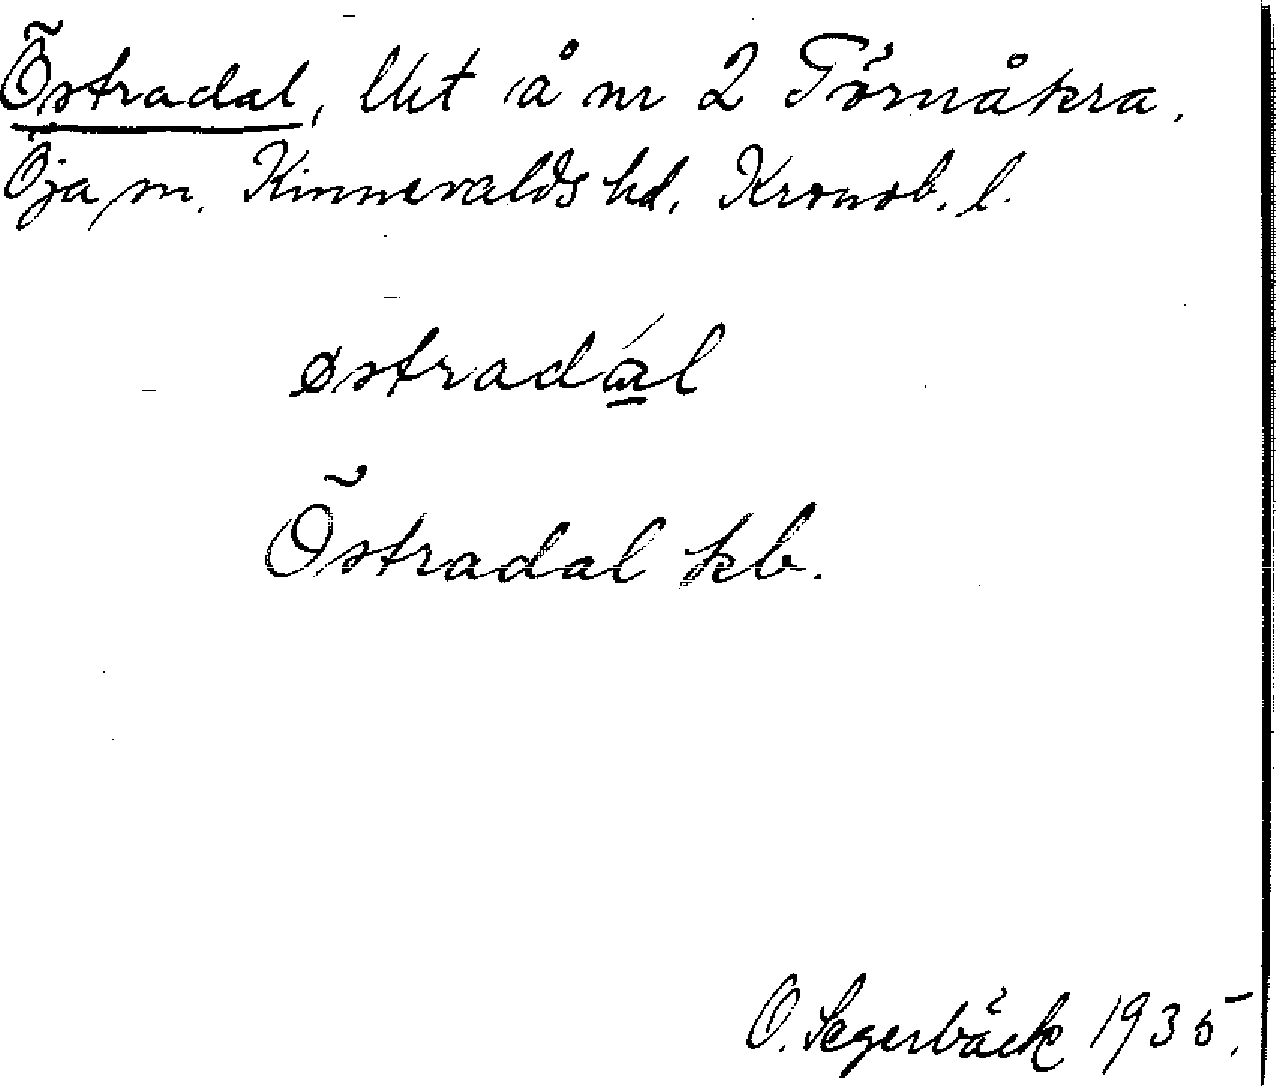 Östradal, lht å nr 2 Törnåkra.
Öja sn. Kinnevalds hd. Kronob. l.
østradál
Östradal kb.
O. Segerbäck 1935.